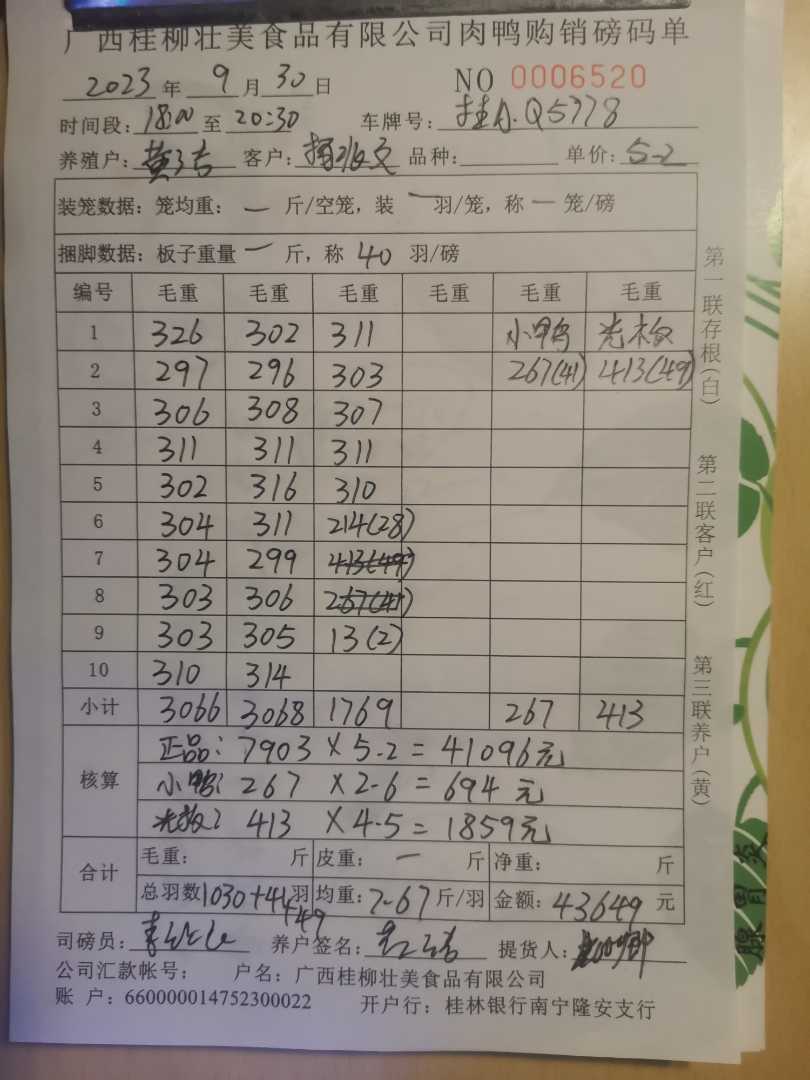 广西桂柳壮美食品有限公司肉鸭购销磅码单
2023年 9月30日 NO 0006520
时间段: 18:00 至 20:30 车牌号: 桂A.Q5778
养殖户: 客户: 品种: 单价: 5-2
装笼数据: 笼均重: 一 斤/空笼, 装 一 羽/笼, 称 一 笼/磅
捆脚数据: 板子重量 一 斤, 称 40 羽/磅
编号 毛重 毛重 毛重 毛重 毛重 毛重
1 326 302 311 小鸭 光板
2 297 296 303 267(41) 413(49)
3 306 308 307
4 311 311 311
5 302 316 310
6 304 311 214(28)
7 304 299 413(49)
8 303 306 267(41)
9 303 305 13(2)
10 310 314
小计 3066 3068 1769 267 413
核算 正品: 7903 × 5-2 = 41096元
小鸭: 267 × 2-6 = 694 元
光板: 413 × 4-5 = 1859元
合计 毛重: 斤 皮重: 一 斤 净重: 斤
总羽数 1030+41羽 均重: 7-67 斤/羽 金额: 43649 元
+49
司磅员: 养户签名: 提货人:
公司汇款帐号: 户名: 广西桂柳壮美食品有限公司
账 户: 660000014752300022 开户行: 桂林银行南宁隆安支行
第一联存根(白)
第二联客户(红)
第三联养户(黄)